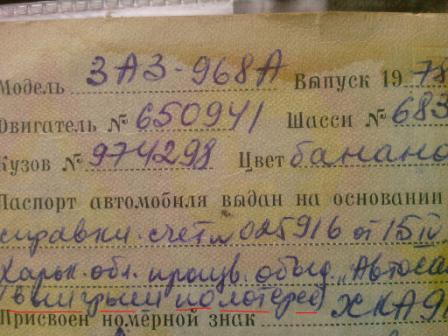 Модель ЗАЗ-968А Выпуск 1978
Двигатель № 650941 Шасси № 683
Кузов № 974298 Цвет банано
Паспорт автомобиля выдан на основании
справки-счет № 025916 от 15
Харьк. обл. произв. объед. „Автоса
(выигрыш по лотерее)
Присвоен номерной знак ХКА